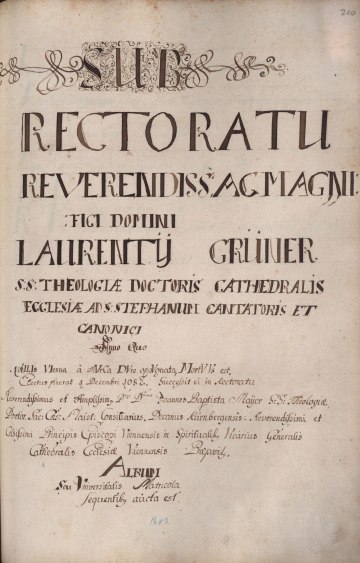 210
SUB
RECTORATU
REVERENDISS: AC MAGNI=
FICI DOMINI
LAURENTIJ GRÜNER
S:S: THEOLOGIÆ DOCTORIS CATHEDRALIS
ECCLESIÆ AD S. STEPHANUM CANTATORIS ET
CANONICI
Anno Quo
Vienna à est,
Electus fuerat 4 Decembr: Successit ei in Rectoratu
Reverendissimus et Amplissim: D: Joannes Baptista Mayer S:S: Theologiæ
Doctor, Sac: Cæs: Consiliarius, Decanus Kürnbergensis: Reverendissimi et
Celsissimi Principis Episcopi Viennensis in Spiritualib: Vicarius Generalis
Cathedralis Ecclesiæ Viennensis Præposit:
ALBUM
Seu Universitatis Matricola
sequentib: aucta est.